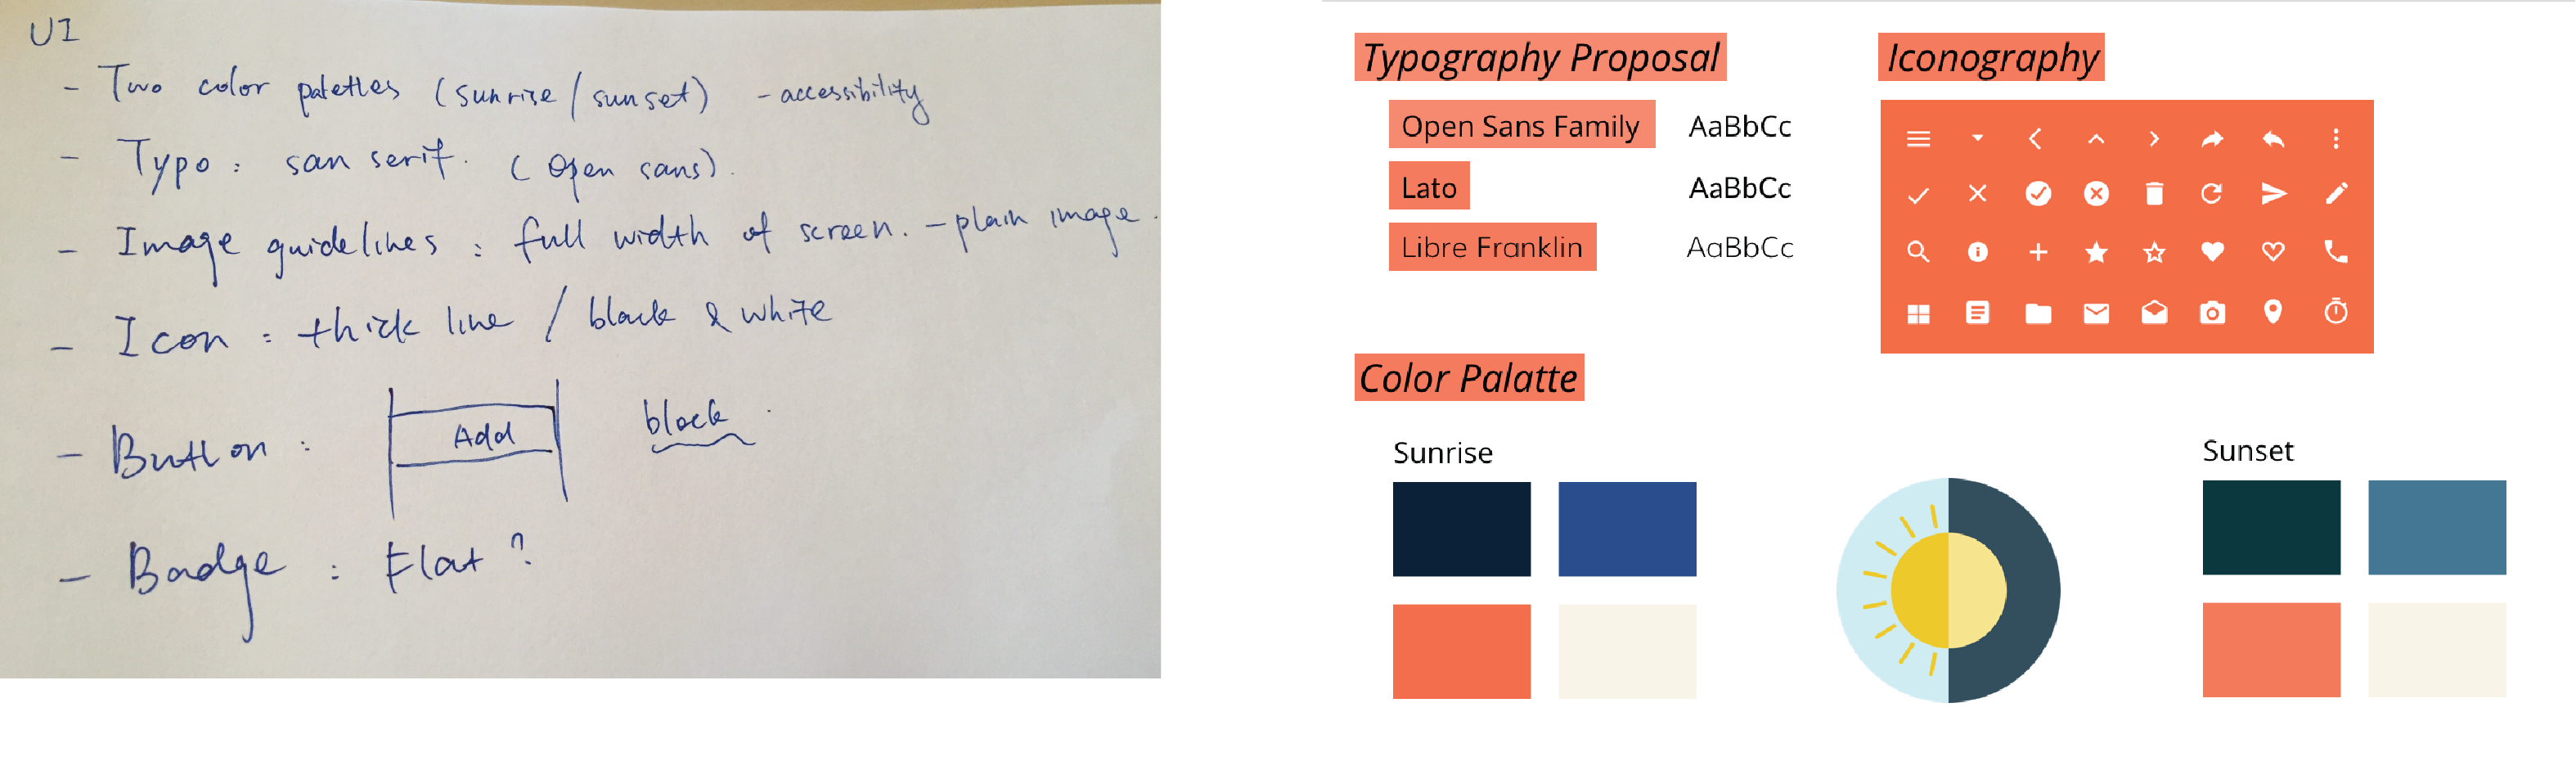 UI
- Two color palettes (sunrise/sunset) - accessibility
- Typo : san serif. (Open sans).
- Image guidelines : full width of screen. - plain image.
- Icon : thick line / black & white
- Button : Add block
- Badge : Flat ?
Typography Proposal
Open Sans Family AaBbCc
Lato AaBbCc
Libre Franklin AaBbCc
Iconography
Color Palatte
Sunrise
Sunset